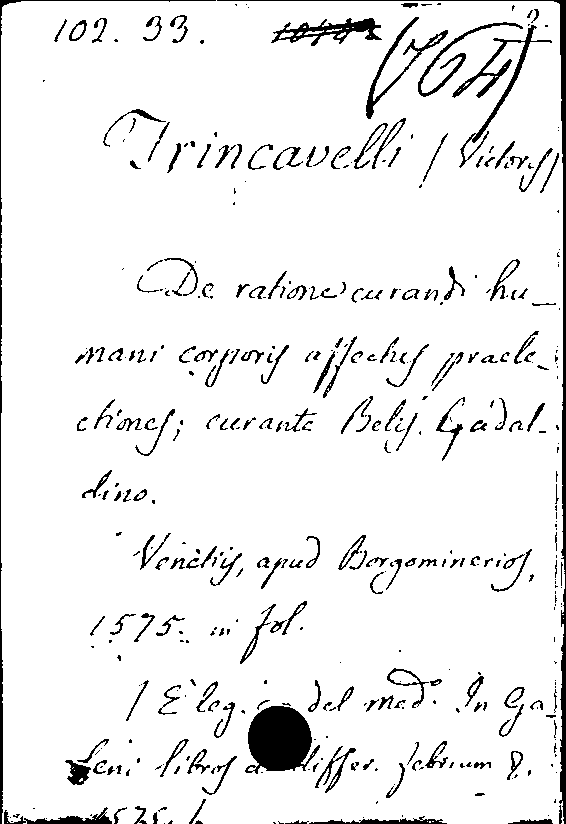 102. 33. (764) 2.
Trincavelli / Victores /
De ratione curandi hu-
mani corporis affectus praele-
ctiones; curante Belis. Gadal-
dino.
Venetiis, apud Borgominerios,
1575. in fol.
/ E' leg. del med. In Ga-
leni libros differ. febrium &.
1575. /